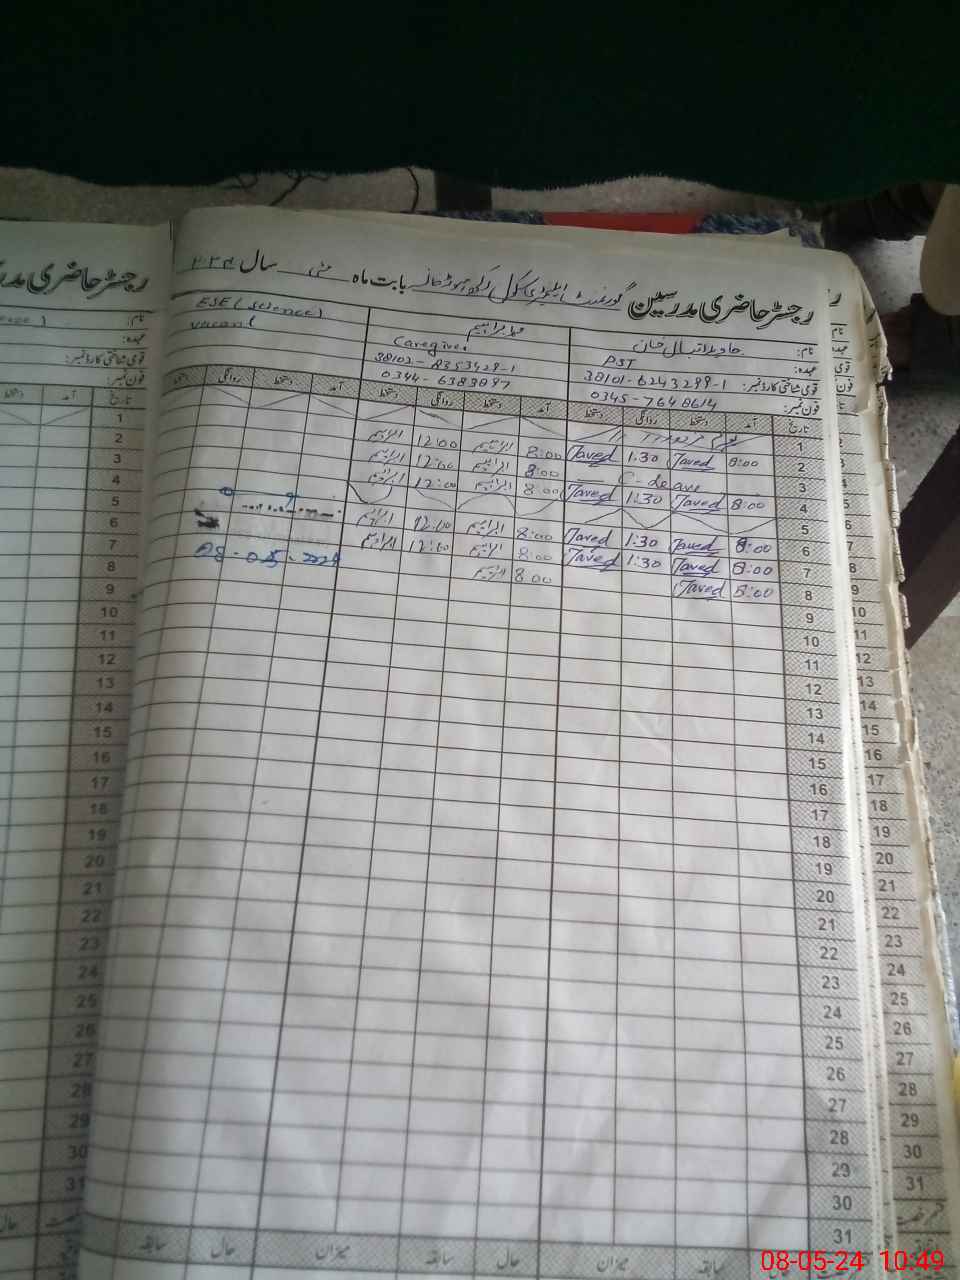 رجسٹر حاضری مدرسین گورنمنٹ بابت ماہ مئی سال
نام: جاوید اقبال خان
عہدہ: PST
قومی شناختی کارڈ نمبر: 38101-6243299-1
فون نمبر: 0345-7648614
محمد ابراہیم
Caregiver
38102-8353429-1
0344-6383897
ESE (science)
vacant
تاریخ آمد دستخط روانگی دستخط آمد دستخط روانگی دستخط آمد دستخط روانگی دستخط
1
2 8:00 Javed 1:30 Javed 8:00 ابراہیم 12:00 ابراہیم
3 C-leave 8:00 ابراہیم 12:00 ابراہیم
4 8:00 Javed 1:30 Javed 8:00 ابراہیم 12:00 ابراہیم
5
6 8:00 Javed 1:30 Javed 8:00 ابراہیم 12:00 ابراہیم
7 8:00 Javed 1:30 Javed 8:00 ابراہیم 12:00 ابراہیم
8 8:00 Javed 8:00 ابراہیم
08-05-2024
9
10
11
12
13
14
15
16
17
18
19
20
21
22
23
24
25
26
27
28
29
30
31
میزان حال سابقہ میزان حال سابقہ
رجسٹر حاضری
نام:
عہدہ:
قومی شناختی کارڈ نمبر:
فون نمبر:
تاریخ آمد دستخط
1
2
3
4
5
6
7
8
9
10
11
12
13
14
15
16
17
18
19
20
21
22
23
24
25
26
27
28
29
30
31
حال
08-05-24 10:49